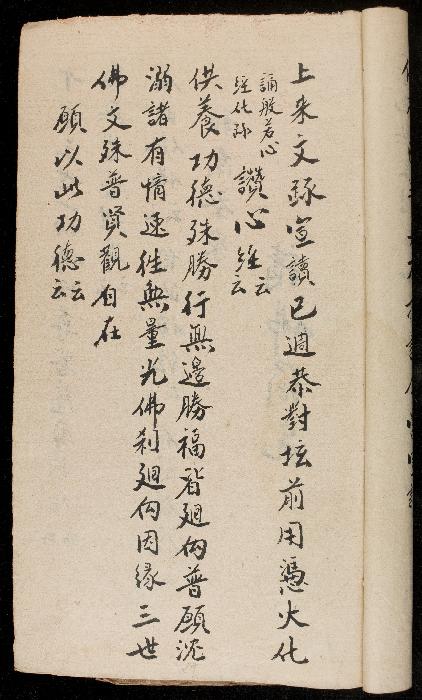 上来文疏宣讀已週恭對坛前用憑火化
誦般若心
經化疏
讚心經云云
供養功德殊勝行無邊勝福皆廻向普願沉
溺諸有情速往無量光佛刹廻向因緣三世
佛文殊普賢觀自在
願以此功德云云